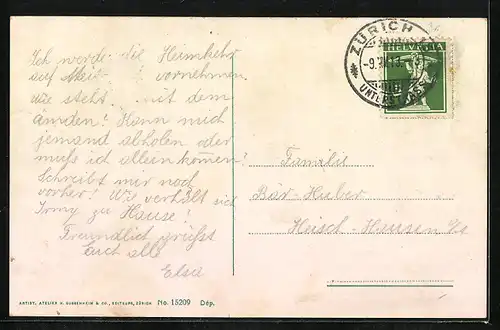 Ich werde die Heimkehr
auf vornehmen
wie steht mit dem
Kann mich
jemand abholen oder
muss ich allein kommen!
Schreibt mir noch
vorher! Wie verhält sich
Irmy zu Hause!
Freundlich grüsst
Euch alle
Elsa
ZÜRICH
-9.
UNTERSTRASS
HELVETIA
Familie
Bär-Huber
Hausen
ARTIST. ATELIER H. GUGGENHEIM & CO., EDITEURS, ZÜRICH No. 15209 Dép.